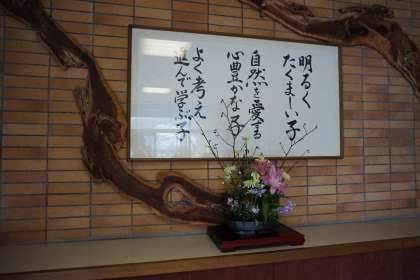 明るく
たくましい子
自然を愛する
心豊かな子
よく考え
進んで学ぶ子